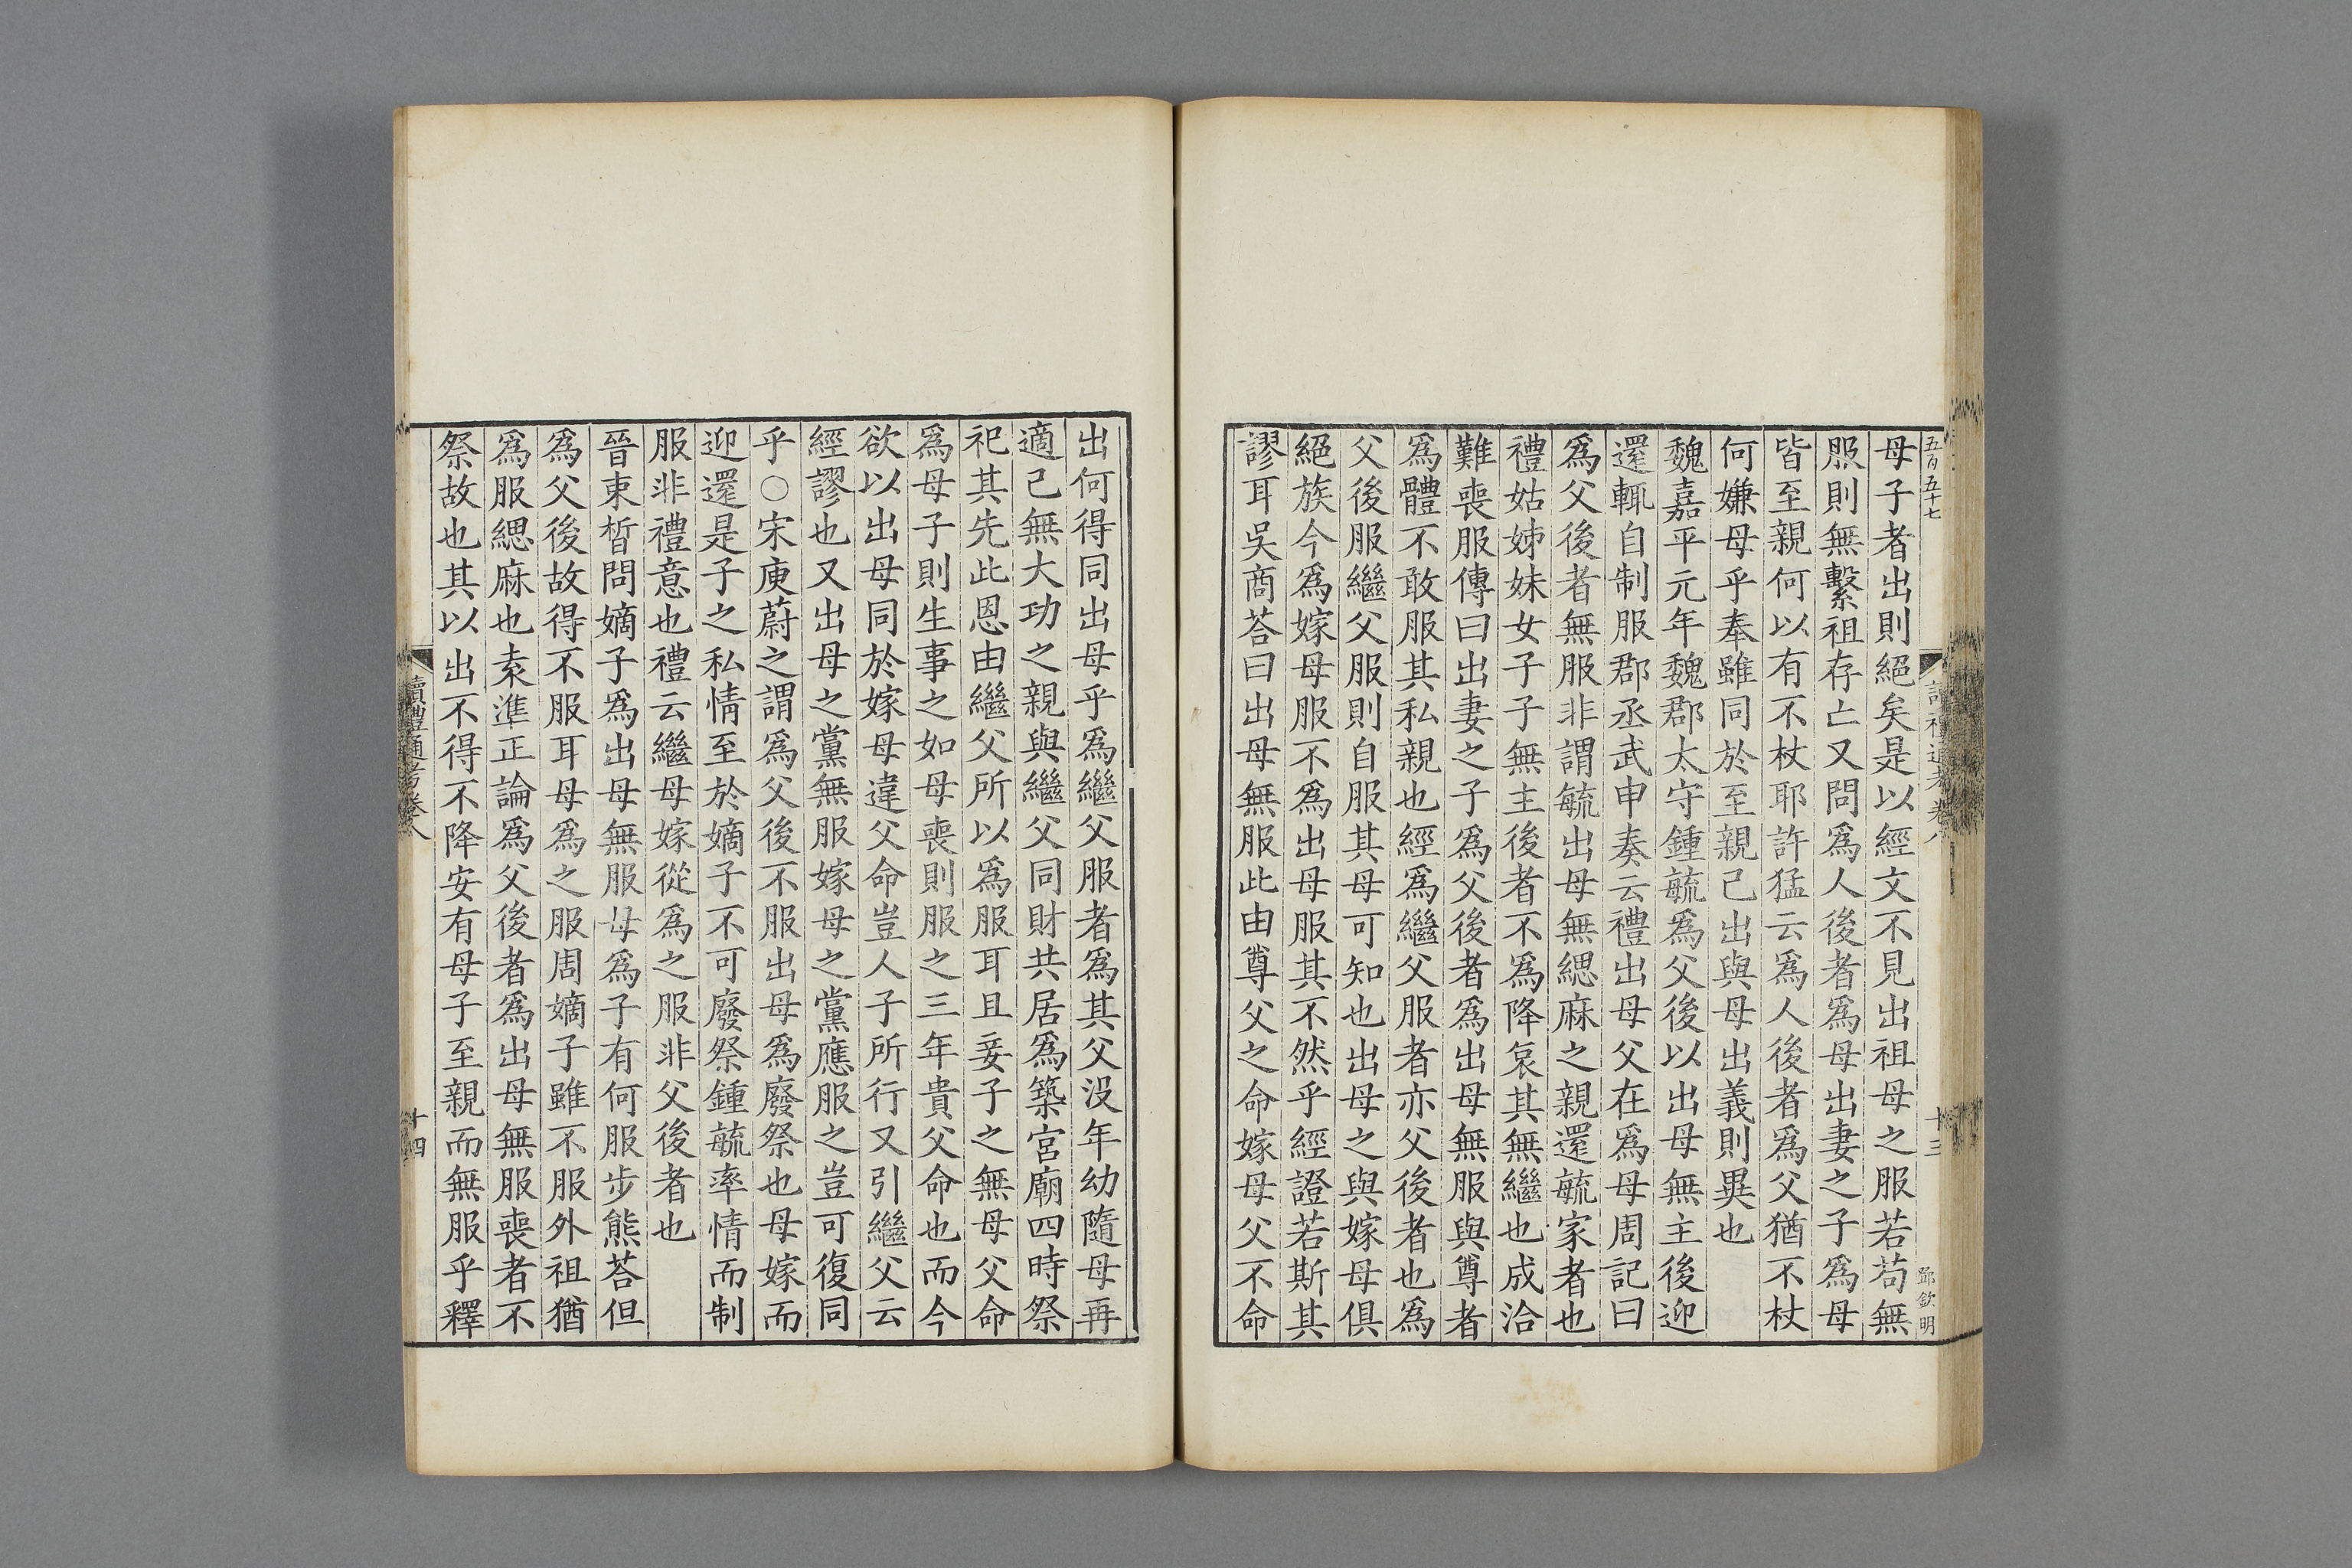 五百五十七
讀禮通考卷八
十三
鄧欽明
母子者出則絕矣是以經文不見出祖母之服若苟無
服則無繫祖存亡又問爲人後者爲母出妻之子爲母
皆至親何以有不杖耶許猛云爲人後者爲父猶不杖
何嫌母乎奉雖同於至親己出與母出義則異也
魏嘉平元年魏郡太守鍾毓爲父後以出母無主後迎
還輒自制服郡丞武申奏云禮出母父在爲母周記曰
爲父後者無服非謂毓出母無緦麻之親還毓家者也
禮姑姊妹女子子無主後者不爲降哀其無繼也成洽
難喪服傳曰出妻之子爲父後者爲出母無服與尊者
爲體不敢服其私親也經爲繼父服者亦父後者也爲
父後服繼父服則自服其母可知也出母之與嫁母俱
絕族今爲嫁母服不爲出母服其不然乎經證若斯其
謬耳吳商荅曰出母無服此由尊父之命嫁母父不命
出何得同出母乎爲繼父服者爲其父沒年幼隨母再
適己無大功之親與繼父同財共居爲築宮廟四時祭
祀其先此恩由繼父所以爲服耳且妾子之無母父命
爲母子則生事之如母喪則服之三年貴父命也而今
欲以出母同於嫁母違父命豈人子所行又引繼父云
經謬也又出母之黨無服嫁母之黨應服之豈可復同
乎○宋庾蔚之謂爲父後不服出母爲廢祭也母嫁而
迎還是子之私情至於嫡子不可廢祭鍾毓率情而制
服非禮意也禮云繼母嫁從爲之服非父後者也
晉束晳問嫡子爲出母無服母爲子有何服步熊荅但
爲父後故得不服耳母爲之服周嫡子雖不服外祖猶
爲服緦麻也袁準正論爲父後者爲出母無服喪者不
祭故也其以出不得不降安有母子至親而無服乎釋
讀禮通考卷八
十四